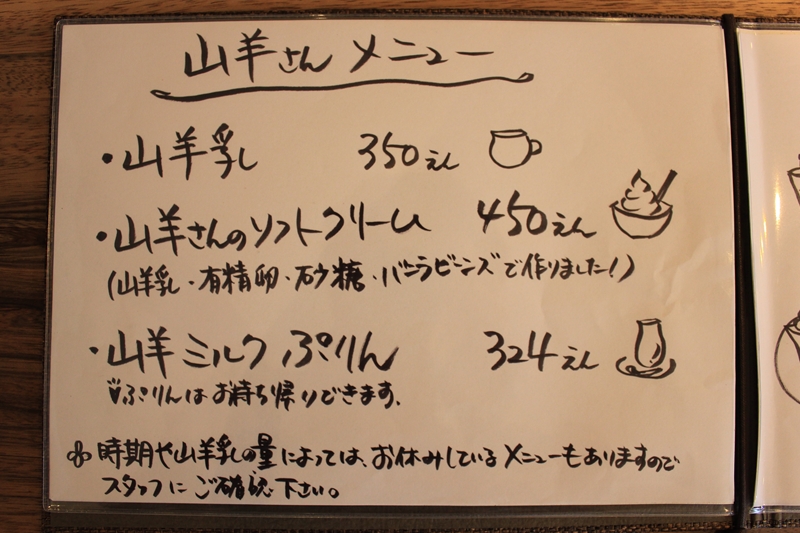 山羊さん メニュー
・山羊乳 350えん
・山羊さんのソフトクリーム 450えん
(山羊乳・有精卵・砂糖・バニラビーンズで作りました!)
・山羊ミルク ぷりん 324えん
ぷりんはお持ち帰りできます。
時期や山羊乳の量によっては、お休みしているメニューもありますので
スタッフにご確認下さい。